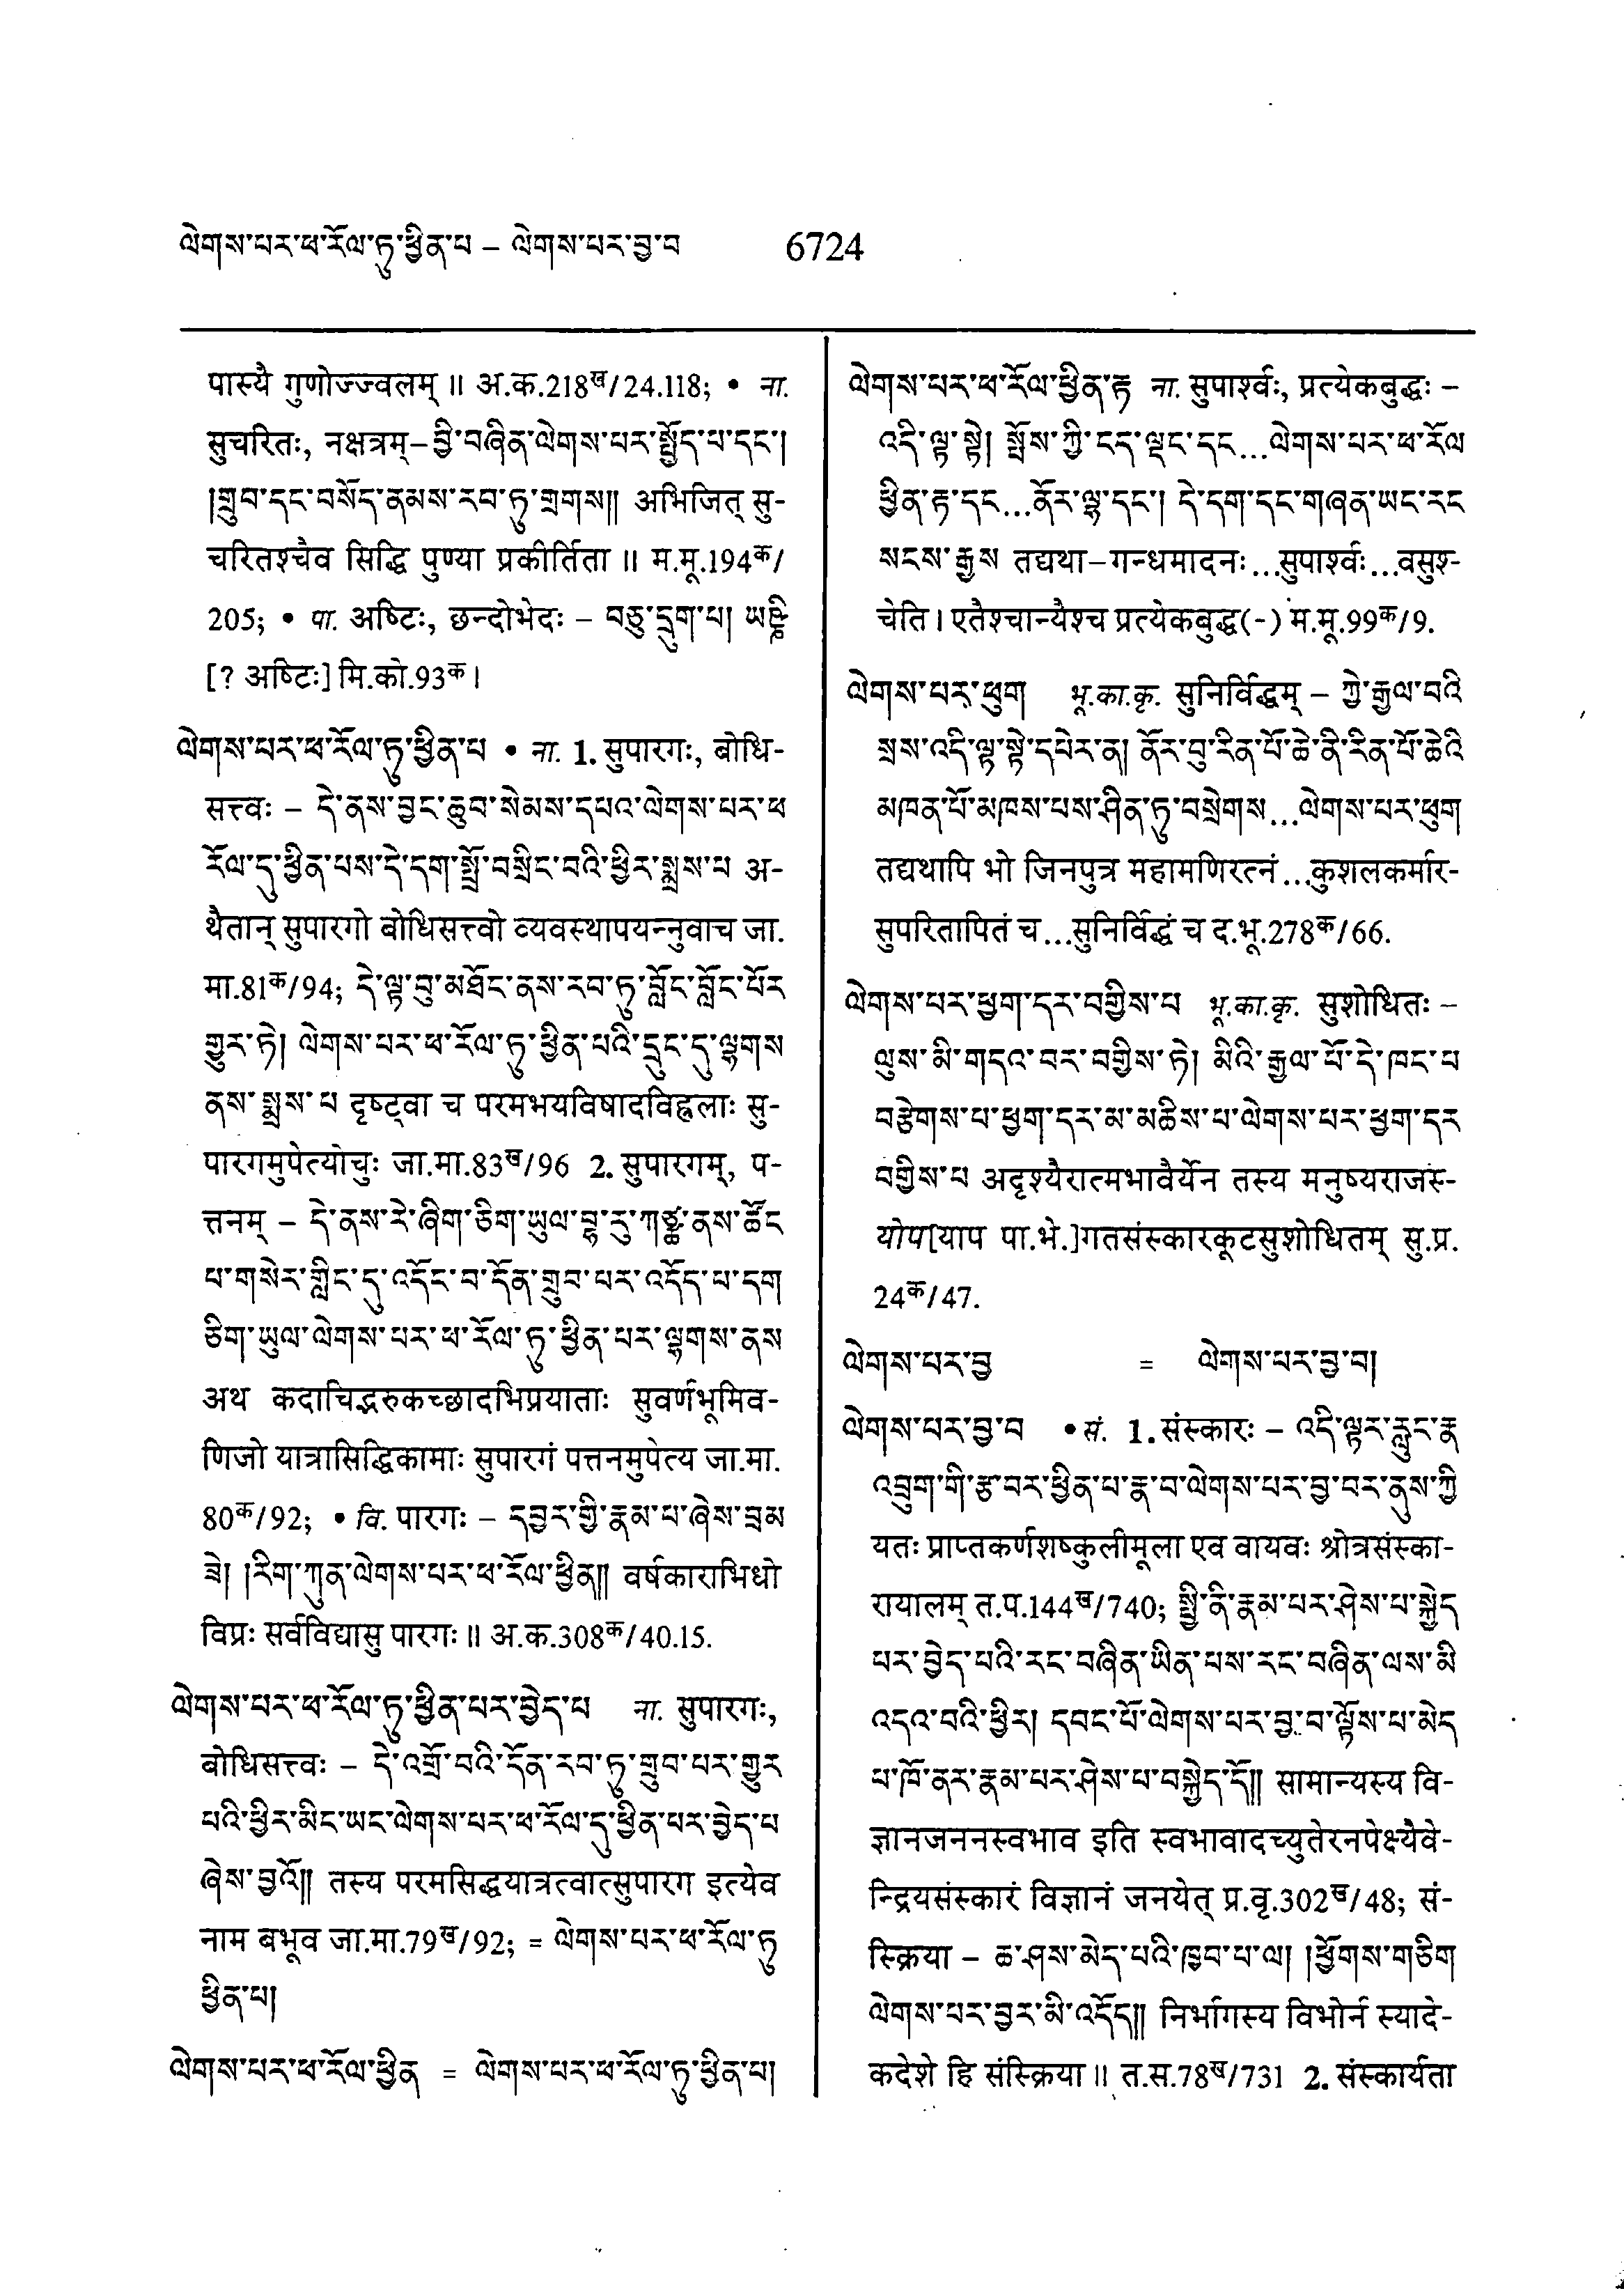 ལེགས་པར་ཕ་རོལ་ཏུ་ཕྱིན་པ – ལེགས་པར་བྱ་བ 6724
पास्यै गुणोज्ज्वलम् ॥ अ.क.218ख/24.118; • ना.
सुचरितः, नक्षत्रम्–བྱི་བཞིན་ལེགས་པར་སྤྱོད་པ་དང་།
།གྲུབ་དང་བསོད་ནམས་རབ་ཏུ་གྲགས།། अभिजित् सु-
चरितश्चैव सिद्धि पुण्या प्रकीर्तिता ॥ म.मू.194क/
205; • पा. अष्टिः, छन्दोभेदः – བཅུ་དྲུག་པ།
[? अष्टिः] मि.को.93क।
ལེགས་པར་ཕ་རོལ་ཏུ་ཕྱིན་པ • ना. 1. सुपारगः, बोधि-
सत्त्वः – དེ་ནས་བྱང་ཆུབ་སེམས་དཔའ་ལེགས་པར་ཕ
རོལ་དུ་ཕྱིན་པས་དེ་དག་སྤྲོ་བསྲིང་བའི་ཕྱིར་སྨྲས་པ अ-
थैतान् सुपारगो बोधिसत्त्वो व्यवस्थापयन्नुवाच जा.
मा.81क/94; དེ་ལྟ་བུ་མཐོང་ནས་རབ་ཏུ་བློང་བློང་པོར
གྱུར་ཏེ། ལེགས་པར་ཕ་རོལ་ཏུ་ཕྱིན་པའི་དྲུང་དུ་ལྷགས
ནས་སྨྲས་པ दृष्ट्वा च परमभयविषादविह्वलाः सु-
पारगमुपेत्योचुः जा.मा.83ख/96 2. सुपारगम्, प-
त्तनम् – དེ་ནས་རེ་ཞིག་ཅིག་ཡུལ་བྷ་རུ་ཀཙྪ་ནས་ཚོང
པ་གསེར་གླིང་དུ་འདོང་བ་དོན་གྲུབ་པར་འདོད་པ་དག
ཅིག་ཡུལ་ལེགས་པར་ཕ་རོལ་ཏུ་ཕྱིན་པར་ལྷགས་ནས
अथ कदाचिद्भरुकच्छादभिप्रयाताः सुवर्णभूमिव-
णिजो यात्रासिद्धिकामाः सुपारगं पत्तनमुपेत्य जा.मा.
80क/92; • वि. पारगः – དབྱར་གྱི་རྣམ་པ་ཞེས་བྲམ
ཟེ། །རིག་ཀུན་ལེགས་པར་ཕ་རོལ་ཕྱིན།། वर्षकाराभिधो
विप्रः सर्वविद्यासु पारगः ॥ अ.क.308क/40.15.
ལེགས་པར་ཕ་རོལ་ཏུ་ཕྱིན་པར་བྱེད་པ ना. सुपारगः,
बोधिसत्त्वः – དེ་འགྲོ་བའི་དོན་རབ་ཏུ་གྲུབ་པར་གྱུར
པའི་ཕྱིར་མིང་ཡང་ལེགས་པར་ཕ་རོལ་དུ་ཕྱིན་པར་བྱེད་པ
ཞེས་བྱའོ།། तस्य परमसिद्धयात्रत्वात्सुपारग इत्येव
नाम बभूव जा.मा.79ख/92; = ལེགས་པར་ཕ་རོལ་ཏུ
ཕྱིན་པ།
ལེགས་པར་ཕ་རོལ་ཕྱིན = ལེགས་པར་ཕ་རོལ་ཏུ་ཕྱིན་པ།
ལེགས་པར་ཕ་རོལ་ཕྱིན་རྟ ना. सुपार्श्वः, प्रत्येकबुद्धः –
འདི་ལྟ་སྟེ། སྤོས་ཀྱི་ངད་ལྡང་དང...ལེགས་པར་ཕ་རོལ
ཕྱིན་རྟ་དང...ནོར་ལྷ་དང་། དེ་དག་དང་གཞན་ཡང་རང
སངས་རྒྱས तद्यथा–गन्धमादनः...सुपार्श्वः...वसुश्-
चेति। एतैश्चान्यैश्च प्रत्येकबुद्ध(-) म.मू.99क/9.
ལེགས་པར་ཕུག भू.का.कृ. सुनिर्विद्धम् – ཀྱེ་རྒྱལ་བའི
སྲས་འདི་ལྟ་སྟེ་དཔེར་ན། ནོར་བུ་རིན་པོ་ཆེ་ནི་རིན་པོ་ཆེའི
མཁན་པོ་མཁས་པས་ཤིན་ཏུ་བསྲེགས...ལེགས་པར་ཕུག
तद्यथापि भो जिनपुत्र महामणिरत्नं...कुशलकर्मार-
सुपरितापितं च...सुनिर्विद्धं च द.भू.278क/66.
ལེགས་པར་ཕྱག་དར་བགྱིས་པ भू.का.कृ. सुशोधितः –
ལུས་མི་གདའ་བར་བགྱིས་ཏེ། མིའི་རྒྱལ་པོ་དེ་ཁང་པ
བརྩེགས་པ་ཕྱག་དར་མ་མཆིས་པ་ལེགས་པར་ཕྱག་དར
བགྱིས་པ अदृश्यैरात्मभावैर्येन तस्य मनुष्यराजस्-
योप[याप पा.भे.]गतसंस्कारकूटसुशोधितम् सु.प्र.
24क/47.
ལེགས་པར་བྱ = ལེགས་པར་བྱ་བ།
ལེགས་པར་བྱ་བ • सं. 1. संस्कारः – འདི་ལྟར་རླུང་རྣ
འབྲུག་གི་རྩ་བར་ཕྱིན་པ་རྣ་བ་ལེགས་པར་བྱ་བར་ནུས་ཀྱི
यतः प्राप्तकर्णशष्कुलीमूला एव वायवः श्रोत्रसंस्का-
रायालम् त.प.144ख/740; སྤྱི་ནི་རྣམ་པར་ཤེས་པ་སྐྱེད
པར་བྱེད་པའི་རང་བཞིན་ཡིན་པས་རང་བཞིན་ལས་མི
འདའ་བའི་ཕྱིར། དབང་པོ་ལེགས་པར་བྱ་བ་ལྟོས་པ་མེད
པ་ཁོ་ནར་རྣམ་པར་ཤེས་པ་བསྐྱེད་དོ།། सामान्यस्य वि-
ज्ञानजननस्वभाव इति स्वभावादच्युतेरनपेक्ष्यैवे-
न्द्रियसंस्कारं विज्ञानं जनयेत् प्र.वृ.302ख/48; सं-
स्क्रिया – ཆ་ཤས་མེད་པའི་ཁྱབ་པ་ལ། །ཕྱོགས་གཅིག
ལེགས་པར་བྱར་མི་འདོད།། निर्भागस्य विभोर्न स्यादे-
कदेशे हि संस्क्रिया ॥ त.स.78ख/731 2. संस्कार्यता